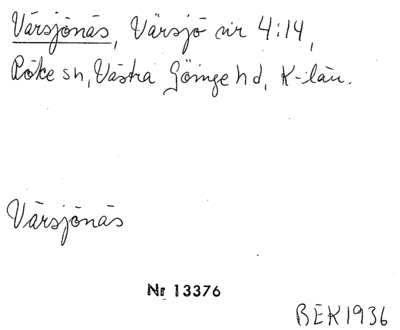 Värsjönäs, Värsjö nr 4:14,
Röke sn, Västra Göinge hd, K-län.
Värsjönäs
Nr 13376
BEK1936